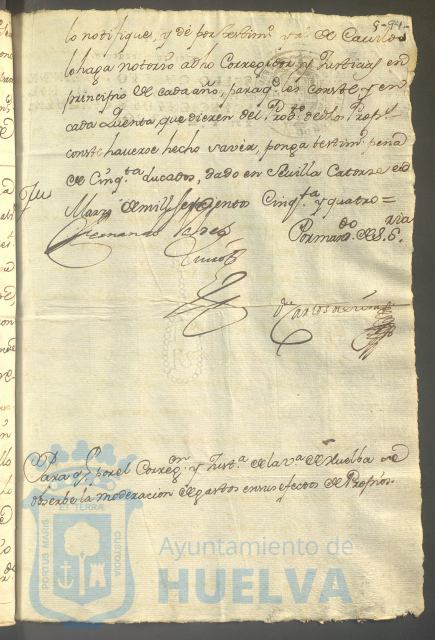 9-94
lo notifique, y dé por testimo. vno. de Cauildo
lo haga notorio adho Corregidor y Justicias, en
principio de cada año, paraq. les conste, y en
cada quenta, que dieren del Prodto. de dhos Props.
conste hauerse hecho saver, ponga testimo. pena
de Cinqta ducados, dado en Sevilla Catorze de
Marzo de mill setezientos Cinqta y quatro =
Por mando. de S. Sria
Carlos de
Para q. por el Corregon. y Justa. de la va. de Huelba se
observe la moderacion de gastos en sus efectos de Proprios.
PORTUS MARIS ET TERRAE CUSTODIA
Ayuntamiento de
HUELVA